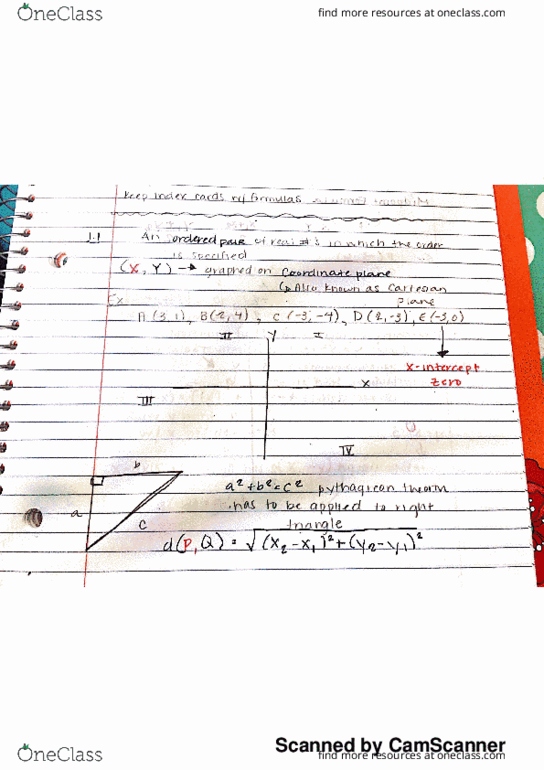 OneClass
find more resources at oneclass.com
Keep Index cards w/ formulas
1.1 An ordered pair of real #'s in which the order
is specified
(X, Y) → graphed on Coordinate plane
↳ Also known as Cartesian
Plane
Ex
A (3, 1), B(2, 4), C (-3, -4), D(2, -3), E(-3, 0)
II Y I
X-intercept
zero
X
III
IV
b
a
c
a²+b²=c² pythagrean theorm
has to be applied to right
triangle
d(P, Q) = √(x₂-x₁)²+(y₂-y₁)²
Scanned by CamScanner
OneClass
find more resources at oneclass.com